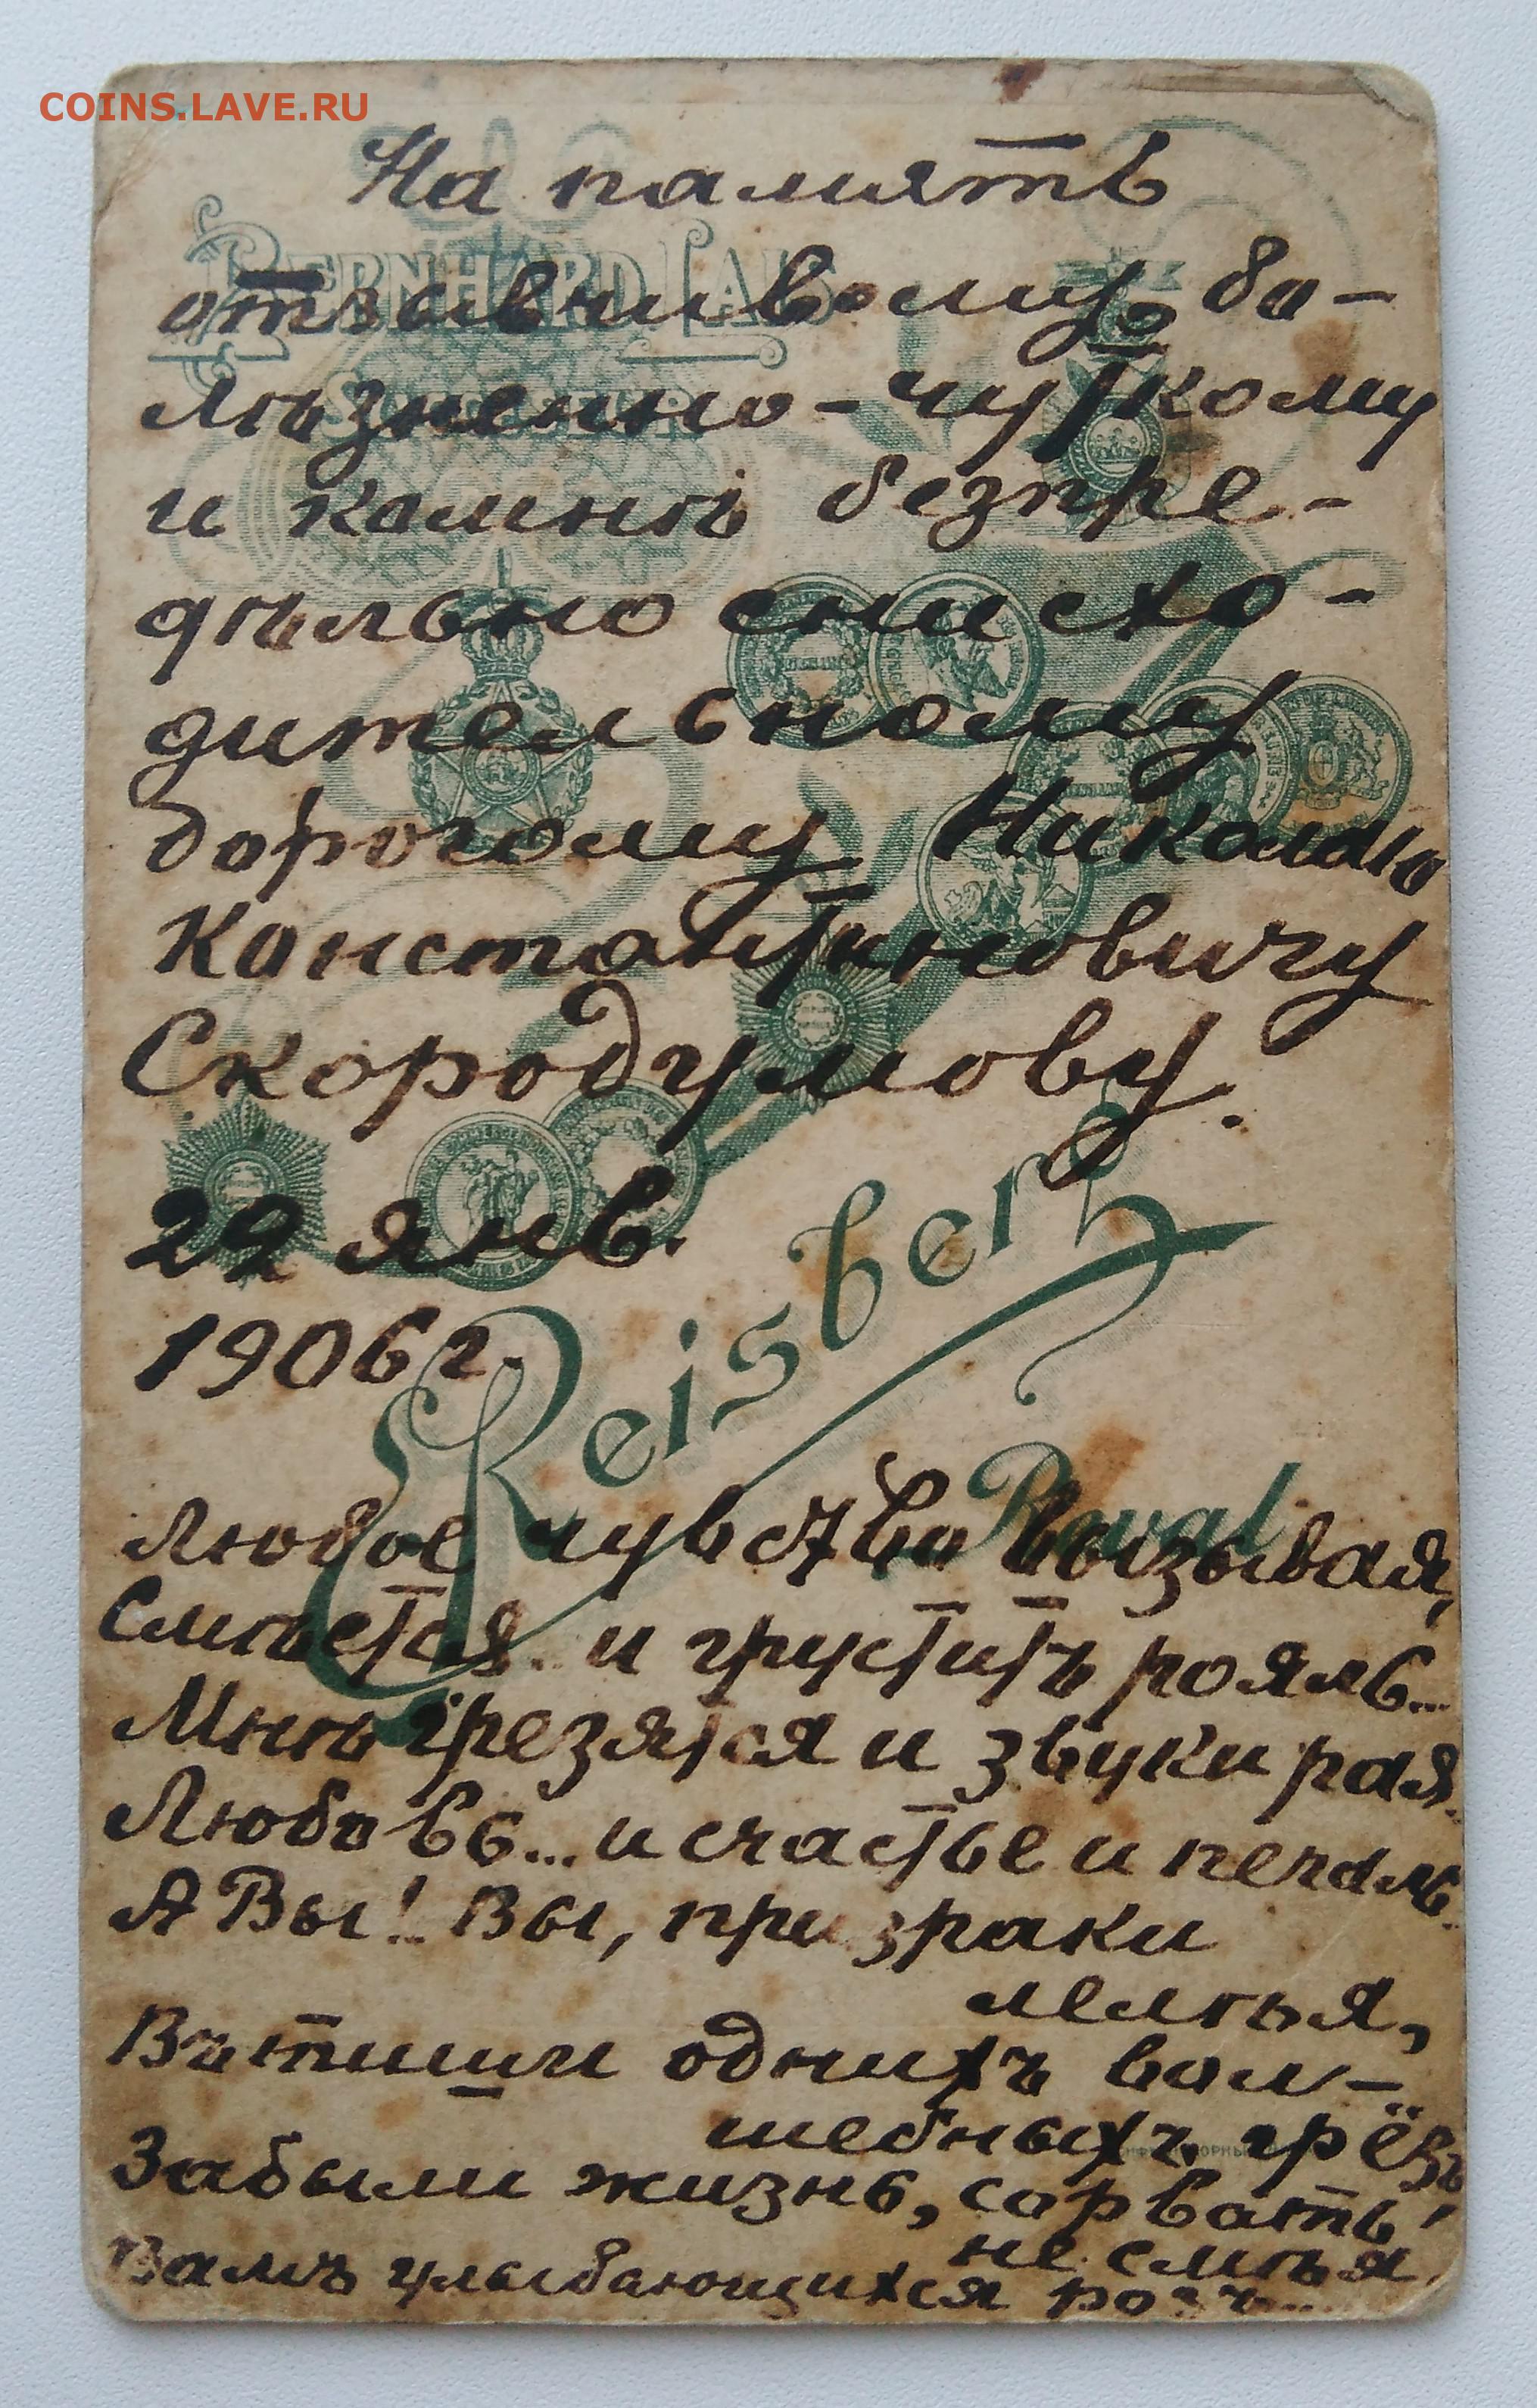 COINS.LAVE.RU
На память
отзывчивому, бо-
лѣзненно-чуткому
и ко мнѣ безпре-
дѣльно снисхо-
дительному
дорогому Николаю
Константиновичу
Скородумову.
29 янв.
1906 г.
BERNHARD LAIS
SUCCESSEUR
Reisberg
Reval
Любое чувство вызывая,
Смѣется и груститъ рояль...
Мнѣ грезятся и звуки рая..
Любовь... и счастье и печаль..
А Вы! Вы, призраки
лелѣя,
Въ тиши однихъ вол-
шебныхъ грёзъ
Забыли жизнь, сорвать
не смѣя
Вамъ улыбающихся розъ...